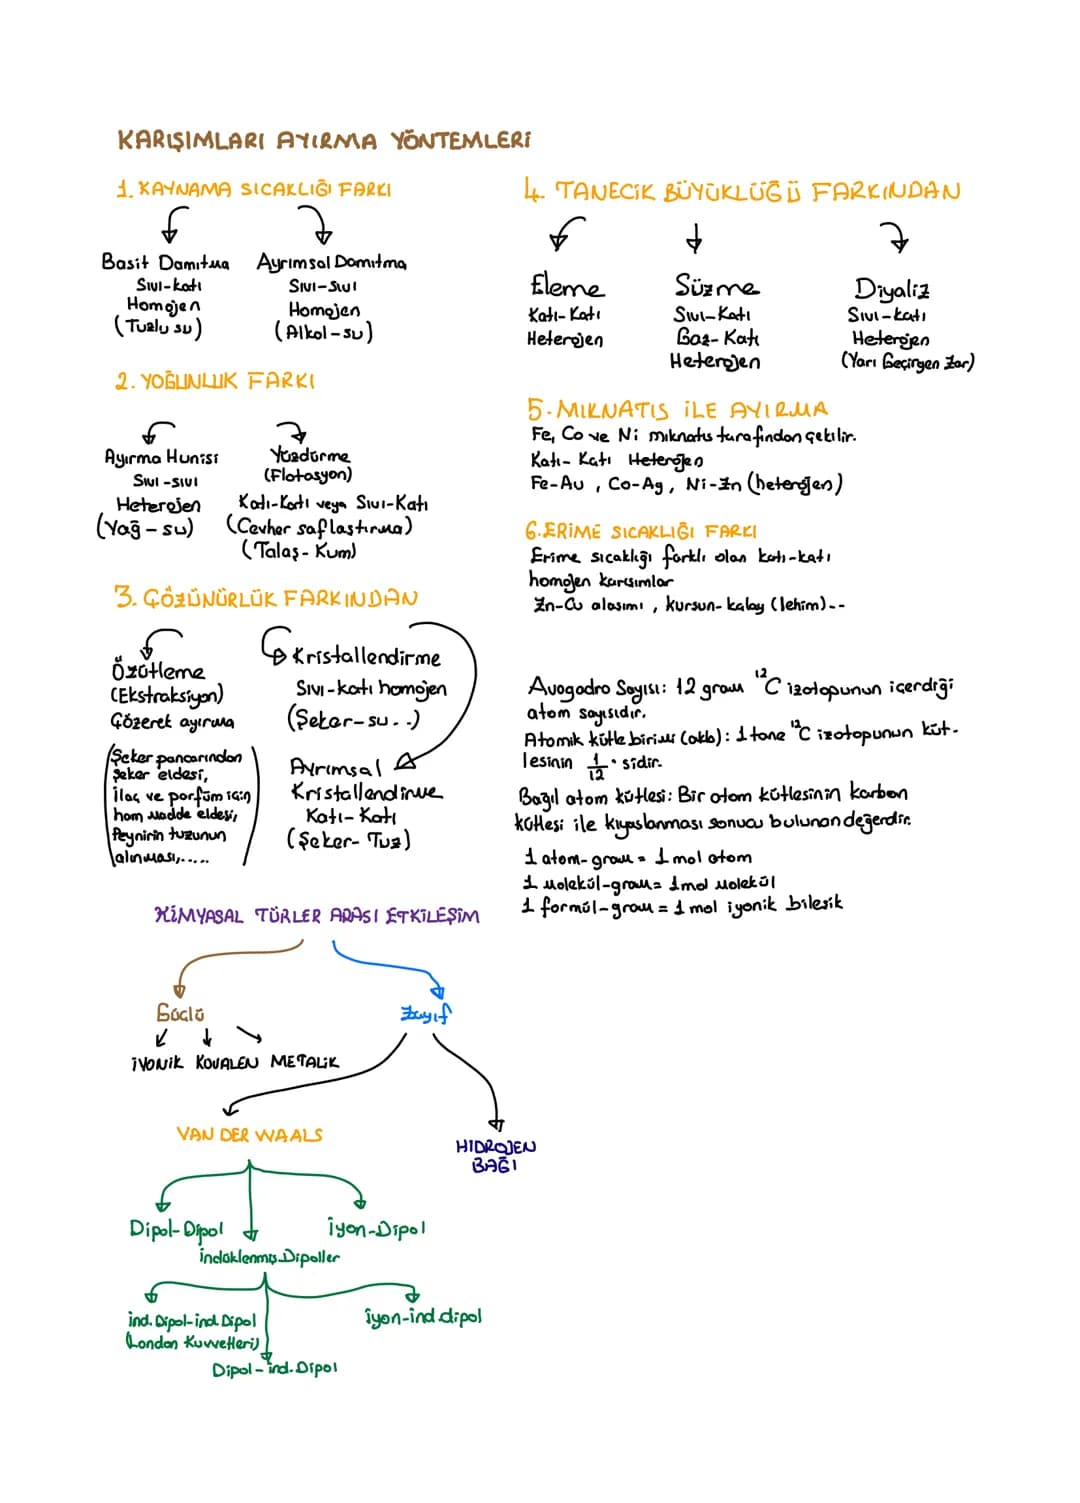 KARIŞIMLARI AYIRMA YÖNTEMLERİ
1. KAYNAMA SICAKLIĞI FARKI
Basit Damıtma
Sıvı-katı
Homojen
(Tuzlu su)
Ayrımsal Damıtma
Sıvı-sıvı
Homojen
(Alkol-su)
2. YOĞUNLUK FARKI
Ayırma Hunisi
Sıvı-sıvı
Heterojen
(Yağ-su)
Yüzdürme
(Flotasyon)
Katı-Katı veya Sıvı-Katı
(Cevher saflaştırma)
(Talaş-Kum)
3. ÇÖZÜNÜRLÜK FARKINDAN
Özütleme
(Ekstraksiyon)
Çözerek ayırma
(Şeker pancarından
şeker eldesi,
İlaç ve parfüm için
ham madde eldesi,
Peynirin tuzunun
alınması,.....)
Kristallendirme
Sıvı-katı homojen
(Şeker-su..)
Ayrımsal
Kristallendirme
Katı-Katı
(Şeker-Tuz)
KİMYASAL TÜRLER ARASI ETKİLEŞİM
Güçlü
Zayıf
İYONİK KOVALEN METALİK
VAN DER WAALS
HİDROJEN
BAĞI
Dipol-Dipol
İyon-Dipol
İndüklenmiş Dipoller
İnd. Dipol-ind. Dipol
(London Kuvvetleri)
İyon-ind.dipol
Dipol-ind.Dipol
4. TANECİK BÜYÜKLÜĞÜ FARKINDAN
Eleme
Katı-Katı
Heterojen
Süzme
Sıvı-Katı
Gaz-Katı
Heterojen
Diyaliz
Sıvı-katı
Heterojen
(Yarı Geçirgen Zar)
5. MIKNATIS İLE AYIRMA
Fe, Co ve Ni mıknatıs tarafından çekilir.
Katı-Katı Heterojen
Fe-Au, Co-Ag, Ni-Zn (heterojen)
6. ERİME SICAKLIĞI FARKI
Erime sıcaklığı farklı olan katı-katı
homojen karışımlar
Zn-Cu alaşımı, kurşun-kalay (lehim)--
Avogadro Sayısı: 12 gram ¹²C izotopunun içerdiği
atom sayısıdır.
Atomik kütle birimi (akb): 1 tane ¹²C izotopunun küt-
lesinin 1/12'sidir.
Bağıl atom kütlesi: Bir atom kütlesinin karbon
kütlesi ile kıyaslanması sonucu bulunan değerdir.
1 atom-gram = 1 mol atom
1 molekül-gram = 1 mol molekül
1 formül-gram = 1 mol iyonik bileşik